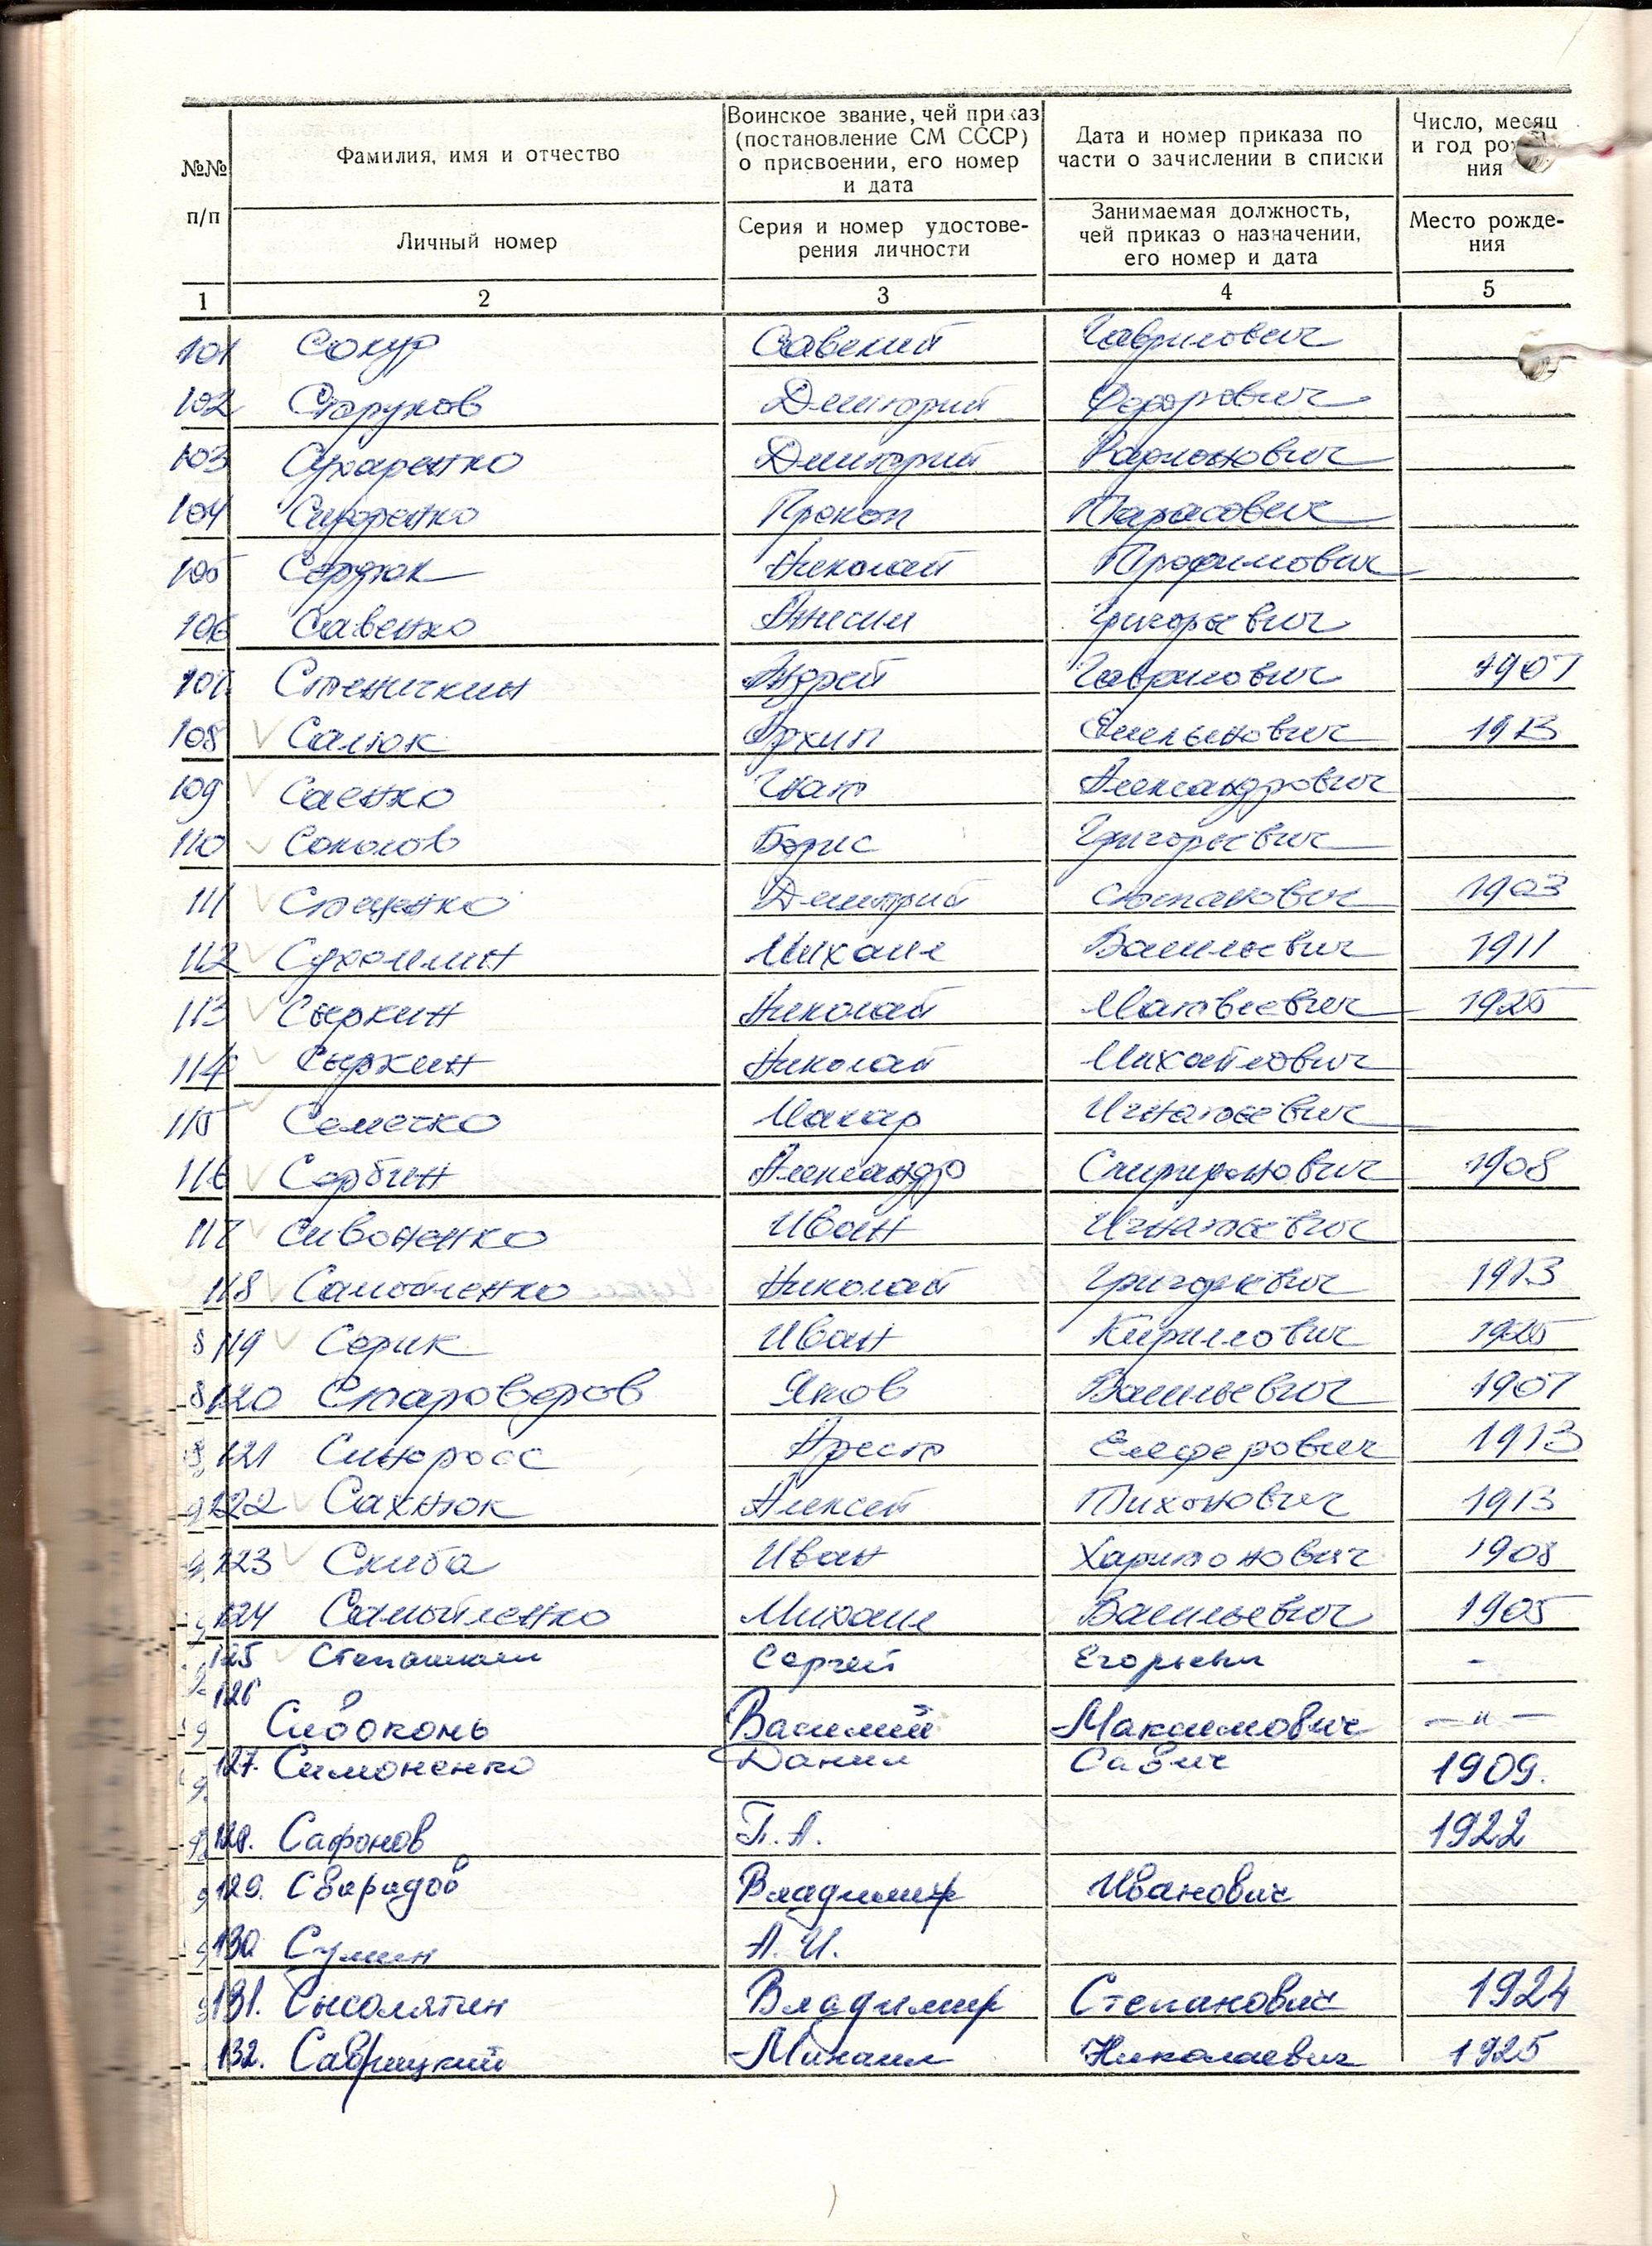 №№ п/п
Фамилия, имя и отчество
Личный номер
Воинское звание, чей приказ
(постановление СМ СССР)
о присвоении, его номер
и дата
Серия и номер удостове-
рения личности
Дата и номер приказа по
части о зачислении в списки
Занимаемая должность,
чей приказ о назначении,
его номер и дата
Число, месяц
и год
ния
Место рожде-
ния
1 2 3 4 5
101 Сокур Савелий Гаврилович
102 Струков Дмитрий Федорович
103 Сухаренко Дмитрий
104 Сидоренко Прокоп Тарасович
105 Сердюк Николай Трофимович
106 Савенко Григорьевич
107. Стеничкин Андрей Гаврилович 1907
108 Салюк Архип Емельянович 1913
109 Саенко Игнат Александрович
110 Соколов Борис Григорьевич
111 Стеценко Дмитрий Степанович 1903
112 Сухомлин Михаил Васильевич 1911
113 Сыркин Николай Матвеевич 1925
114 Сыркин Николай Михайлович
115 Семечко Макар Игнатьевич
116 Сербин Александр Спиридонович 1908
117 Сивоненко Иван Игнатьевич
118 Самойленко Николай Григорьевич 1913
119 Серик Иван Кириллович 1925
120 Староверов Яков Васильевич 1907
121 Арест Елеферович 1913
122 Сахнюк Алексей Тихонович 1913
123 Скиба Иван Харитонович 1908
124 Самойленко Михаил Васильевич 1905
125 Сергей Егорьевич -
126
Сивоконь Василий Максимович — " —
127. Симоненко Данил Савич 1909.
128. Сафонов П. А. 1922
129. Сварадов Владимир Иванович
130 Сулин А. И.
131. Сысолятин Владимир Степанович 1924
132. Саврицкий Михаил Николаевич 1925